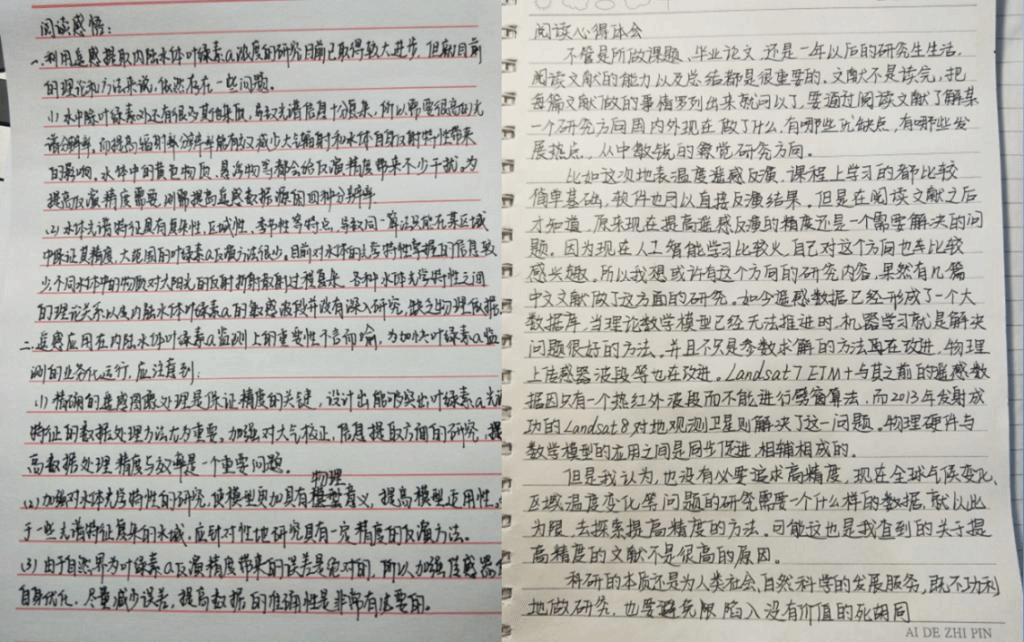 阅读感悟：
一、利用遥感提取内陆水体叶绿素a浓度的研究目前已取得较大进步，但就目前
的理论和方法来说，依然存在一些问题。
(1) 水中除叶绿素以还有很多其他杂质，导致光谱信息十分复杂，所以需要很高的光
谱分辨率，而提高辐射分辨率能有效减少大气辐射和水体自身反射特性带来
的影响。水体中的黄色物质、悬浮物等都会给反演精度带来不少干扰。为
提高反演精度需要，则需提高遥感数据源的四种分辨率
(2) 水体光谱特征具有复杂性、区域性、季节性等特点，导致同一算法只能在某区域
中保证其精度，大范围的叶绿素a反演方法很少。目前对水体的光学特性掌握的信息较
少，不同水体中的物质对太阳光的反射折射散射过程复杂，各种水体光学特性之间
的理论关系以及内陆水体叶绿素a的敏感波段并没有深入研究，缺乏物理依据
二、遥感应用在内陆水体叶绿素a监测上的重要性不言而喻，为加快叶绿素a监
测的业务化运行，应注意到：
(1) 精确的遥感图像处理是保证精度的关键，设计出能够突出叶绿素a光谱
特征的数据处理方法尤为重要。加强对大气校正、信息提取方面的研究，提
高数据处理精度与效率是一个重要问题。
物理
(2) 加强对水体光学特性的研究，使模型更加具有模型意义，提高模型适用性。
于一些光谱特征复杂的水域，应针对性地研究具有一定精度的反演方法。
(3) 由于自然界为叶绿素a反演精度带来的误差是绝对的，所以加强传感器
自身优化，尽量减少误差，提高数据的准确性是非常有必要的。
阅读心得体会
不管是所做课题、毕业论文 还是一年以后的研究生生活，
阅读文献的能力以及总结都是很重要的。文献不是读完，把
每篇文献做的事情罗列出来就可以了，要通过阅读文献了解某
一个研究方向国内外现在做了什么，有哪些优缺点，有哪些发
展热点，从中敏锐的察觉研究方向。
比如这次地表温度遥感反演，课程上学习的都比较
简单基础，软件也可以直接反演结果。但是在阅读文献之后
才知道，原来现在提高遥感反演的精度还是一个需要解决的问
题。因为现在人工智能学习比较火，自己对这个方向也比较
感兴趣，所以我想或许有这个方向的研究内容，果然有几篇
中文文献做了这方面的研究。如今遥感数据已经形成了一个大
数据库，当理论数学模型已经无法推进时，机器学习就是解决
问题很好的方法。并且不只是参数求解的方法在改进，物理
上传感器波段等也在改进。Landsat7 ETM+与其之前的遥感数
据因只有一个热红外波段而不能进行劈窗算法，而2013年发射成
功的Landsat8对地观测卫星则解决了这一问题。物理硬件与
数学模型的应用之间是同步促进、相辅相成的。
但是我认为，也没有必要追求高精度，现在全球气候变化、
区域温度变化等问题的研究需要一个什么样的数据，就以此
为限，去探索提高精度的方法。可能这也是我查到的关于提
高精度的文献不是很高的原因。
科研的本质还是为人类社会、自然科学的发展服务，既不功利
地做研究，也要避免限陷入没有价值的死胡同
AI DE ZHI PIN